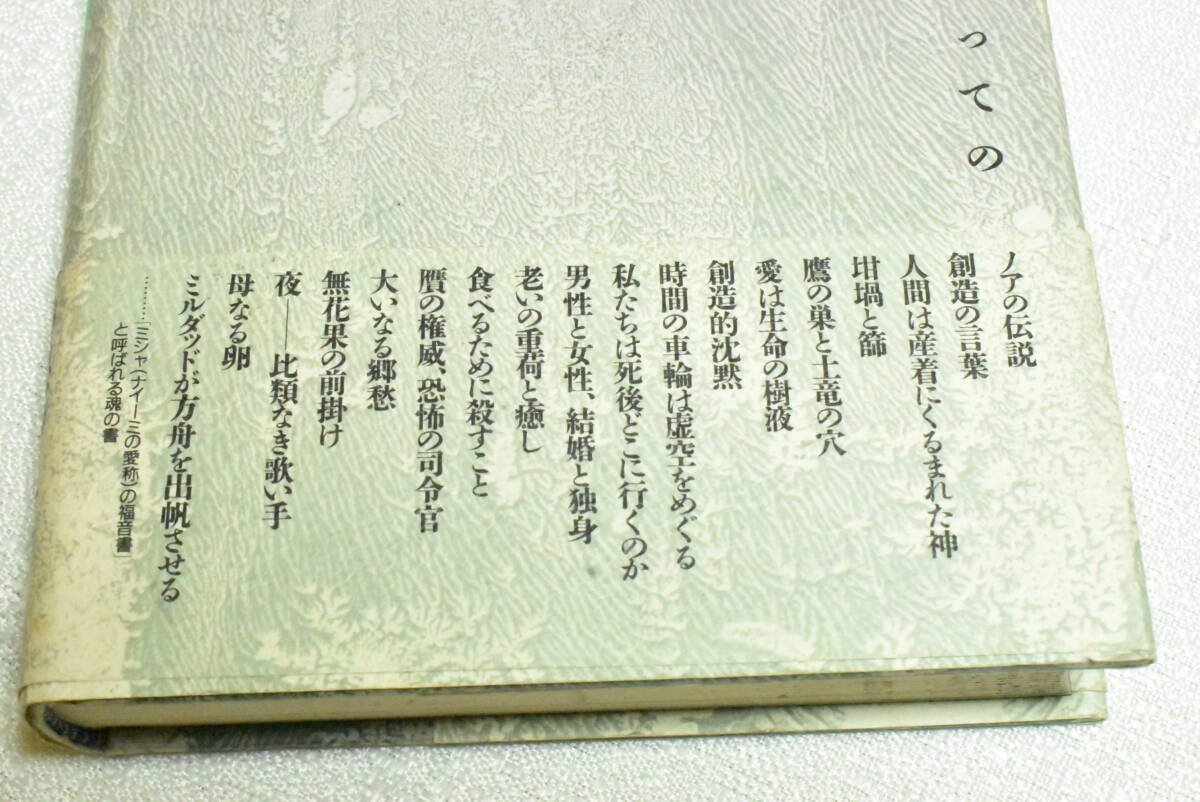 っての
ノアの伝説
創造の言葉
人間は産着にくるまれた神
坩堝と篩
鷹の巣と土竜の穴
愛は生命の樹液
創造的沈黙
時間の車輪は虚空をめぐる
私たちは死後どこに行くのか
男性と女性、結婚と独身
老いの重荷と癒し
食べるために殺すこと
贋の権威、恐怖の司令官
大いなる郷愁
無花果の前掛け
夜——比類なき歌い手
母なる卵
ミルダッドが方舟を出帆させる
………「ミシャ(ナイーミの愛称)の福音書」
と呼ばれる魂の書